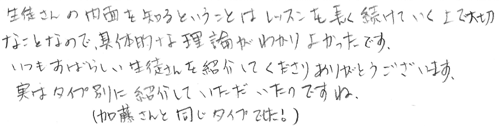 生徒さんの内面を知るということはレッスンを長く続けていく上で大切
なことなので、具体的な理論がわかりよかったです。
いつもすばらしい生徒さんを紹介してくださりありがとうございます。
実はタイプ別に紹介していただいたりですね。
(加藤さんと同じタイプでした!)